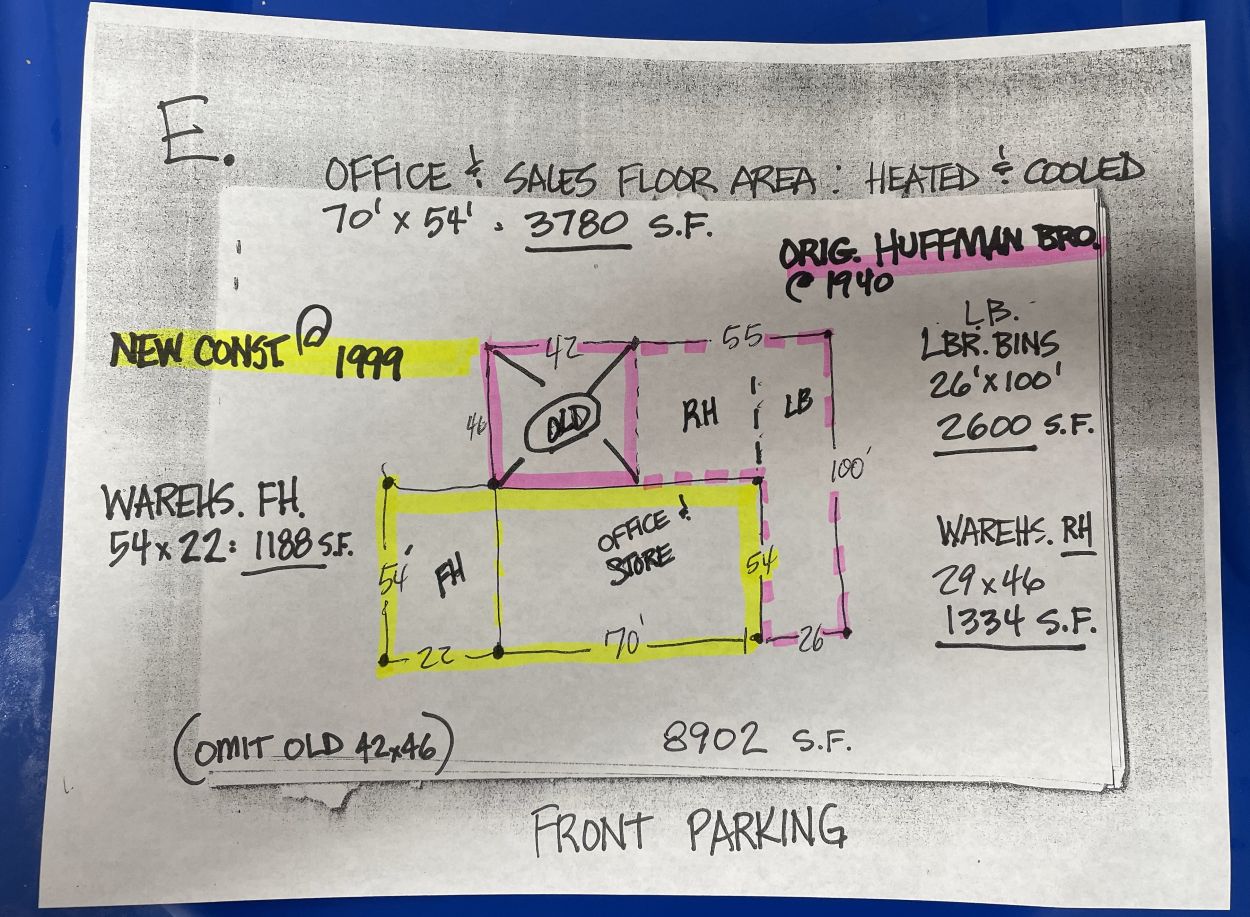 E.
OFFICE & SALES FLOOR AREA : HEATED & COOLED
70' x 54' . 3780 S.F.
ORIG. HUFFMAN BRO.
@ 1940
NEW CONST @ 1999
42
55
L.B.
LBR. BINS
26' x 100'
2600 S.F.
46
OLD
RH
LB
100'
WAREHS. FH.
54 x 22: 1188 S.F.
54'
FH
OFFICE &
STORE
54
WAREHS. RH
29 x 46
1334 S.F.
22
70'
26
(OMIT OLD 42x46)
8902 S.F.
FRONT PARKING